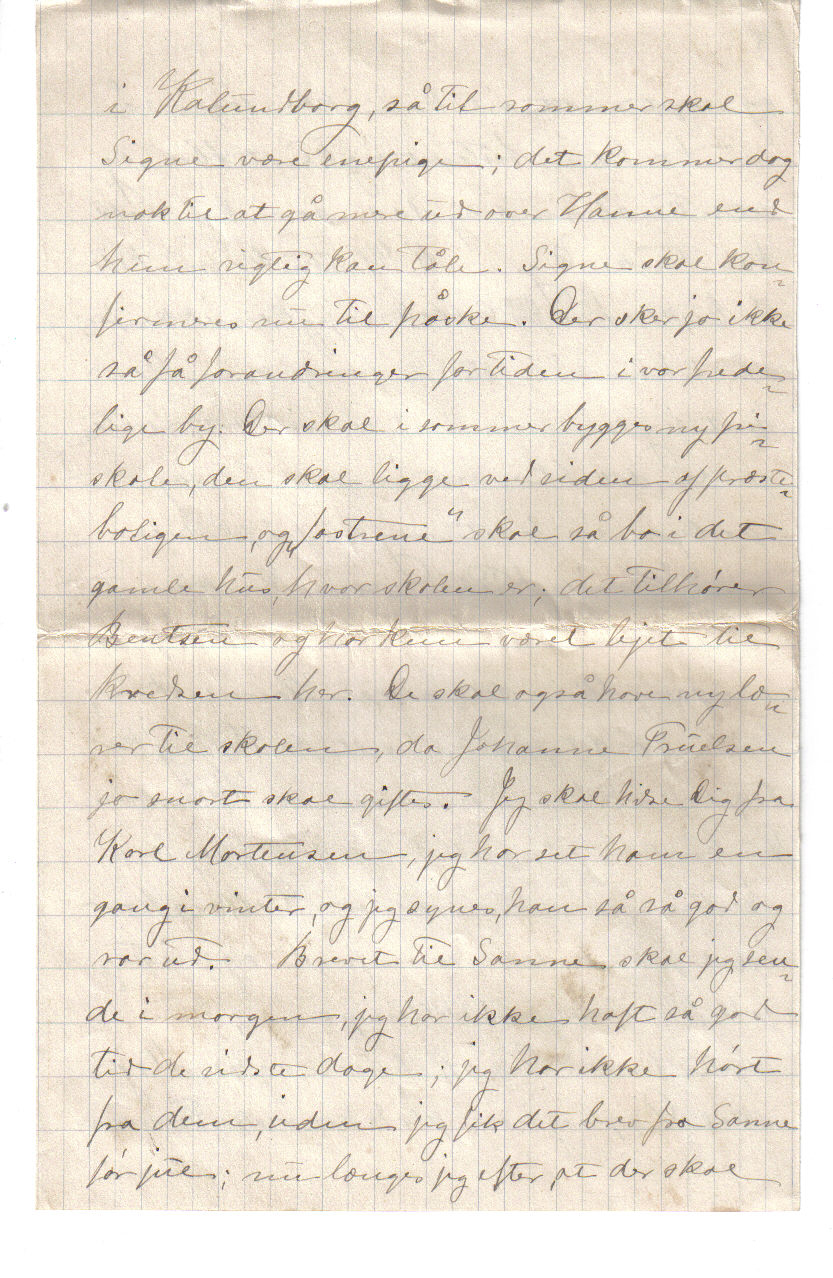 i Kalundborg, så til sommer skal
Signe være enepige; det kommer dog
nok til at gå mere ud over Hanne end
hun rigtig kan tåle. Signe skal kon-
firmeres nu til påske. Der sker jo ikke
så få forandringer for tiden i vor frede-
lige by. Der skal i sommer bygges ny fri-
skole, den skal ligge ved siden af præste-
boligen, og "søstrene" skal så bo i det
gamle hus, hvor skolen er; det tilhører
Bentsen og har kun været lejet til
kredsen her. De skal også have ny læ-
rer til skolen, da Johanne Truelsen
jo snart skal giftes. Jeg skal hilse Dig fra
Karl Mortensen, jeg har set ham en
gang i vinter, og jeg synes, han så så god og
rar ud. Brevet til Sanne skal jeg sen-
de i morgen, jeg har ikke haft så god
tid de sidste dage; jeg har ikke hørt
fra dem, uden jeg fik det brev fra Sanne
før jul; nu længes jeg efter, at der skal